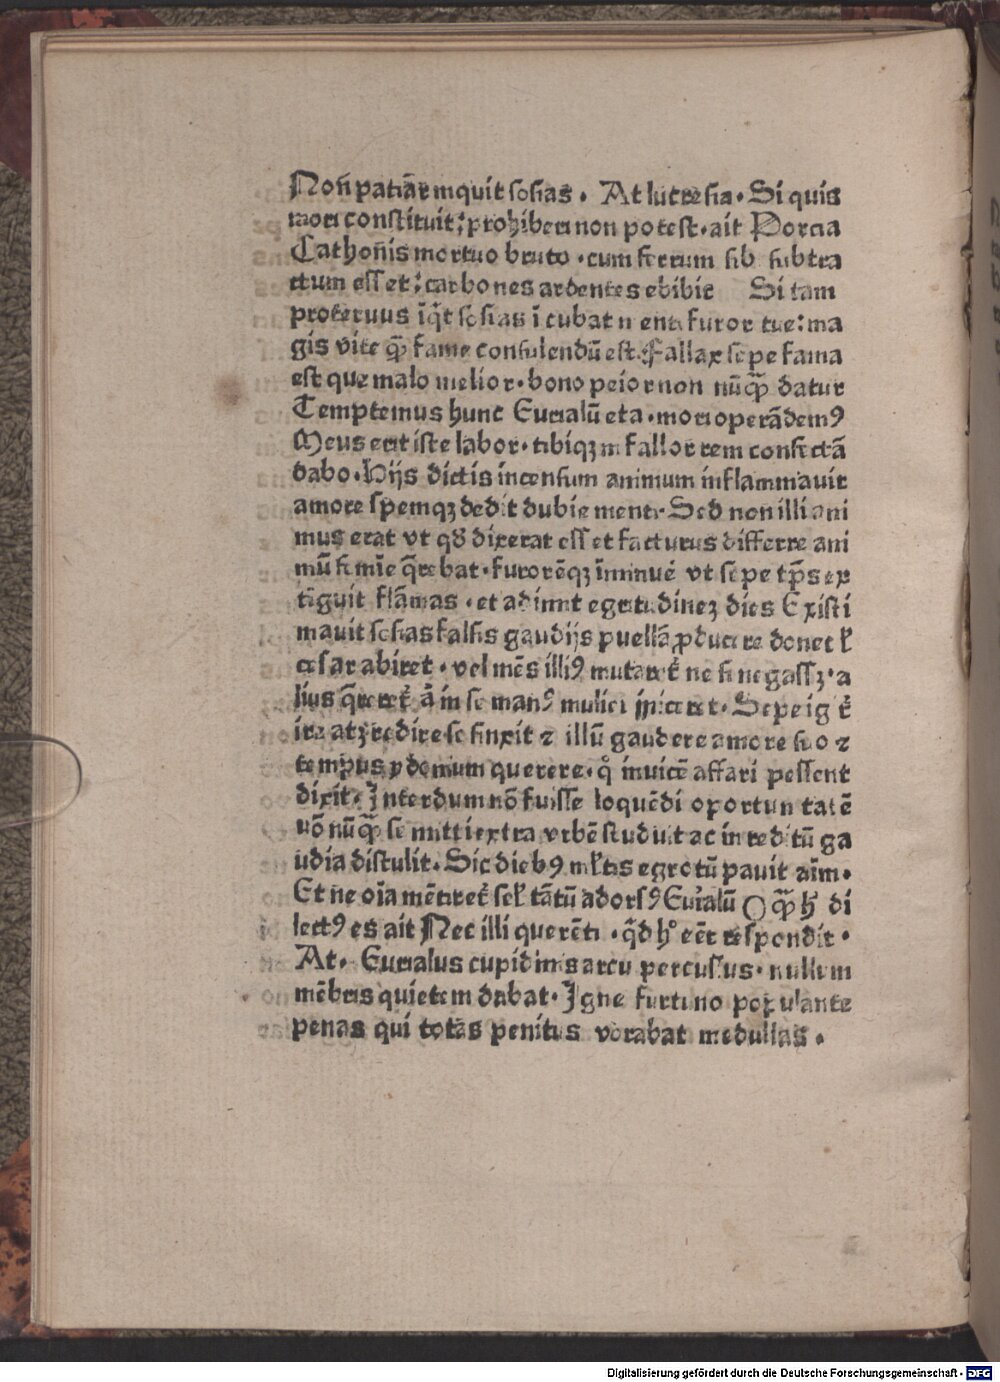 Non̄ patiar̄ inquit sosias . At lucresia . Si quis
mori constituit: prohiberi non potest . ait Porcia
Cathon̄is mortuo bruto . cum ferrum sib subtra
ctum esset: carbones ardentes ebibit Si tam
proteruus īq̇t sosias ī cubat n enti furor tue: ma
gis vite qͣ̄ fame consulendū est. Fallax sepe fama
est que malo melior . bono peior non nūqͣ̄ datur
Temptemus hunc Eurialū et a . mori operā demꝰ
Meus erit iste labor . tibiqꝫ ni fallor rem confectā
dabo . Hijs dictis incensum animum inflammauit
amore spemqꝫ dedit dubie menti . Sed non illi ani
mus erat vt qđ dixerat esset facturus differre ani
mū femīe q̄rebat . furorēqꝫ īminuē vt sepe tp̄s ex
tīguit flāmas . et adimit egritudineꝫ dies Existi
mauit sosias falsis gaudijs puellā ꝓducere donec ł
cesar abiret . vel mēs illiꝰ mutaret᷑ ne si negassꝫ . a
lius q̄reret᷑ ā in se manꝰ mulier iniceret . Sepe ig᷑
ire atꝫ redire se finxit ⁊ illū gaudere amore suo ⁊
tempus ydoneum querere . q᷑ inuicē affari possent
dixit . Interdum nō fuisse loquēdi oportunitatē
nō nūqͣ̄ se mitti extra vrbē studuit ac in reditū ga
udia distulit . Sic diebꝰ mł̄tis egrotū pauit aīm .
Et ne oīa mētiret᷑ seł tātū adorsꝰ Euri̇alū O qͣ̄ hͨ di
lectꝰ es ait Nec illi querēti . q̇d hͦ eēt respondit .
At . Eurialus cupidinis arcu percussus . nullum
mēbris quietem dabat . Igne furtiuo populante
penas qui totas penitus vorabat medullas .
Digitalisierung gefördert durch die Deutsche Forschungsgemeinschaft - DFG